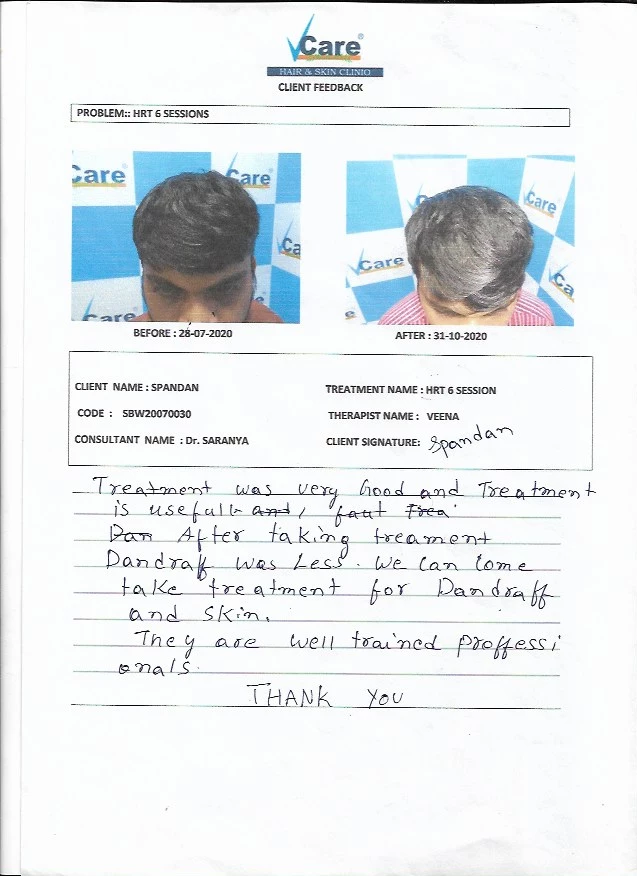 VCare®
HAIR & SKIN CLINIC
CLIENT FEEDBACK
PROBLEM:: HRT 6 SESSIONS
Care®
Care
Care
Care
Care
BEFORE : 28-07-2020
AFTER : 31-10-2020
CLIENT NAME : SPANDAN
TREATMENT NAME : HRT 6 SESSION
CODE : SBW20070030
THERAPIST NAME : VEENA
CONSULTANT NAME : Dr. SARANYA
CLIENT SIGNATURE: Spandan
Treatment was very Good and Treatment
is usefull and, faut Trea
Dan After taking treament
Dandraff was Less. We can Come
take treatment for Dandraff
and skin.
They are well trained proffessi
onals.
THANK YOU